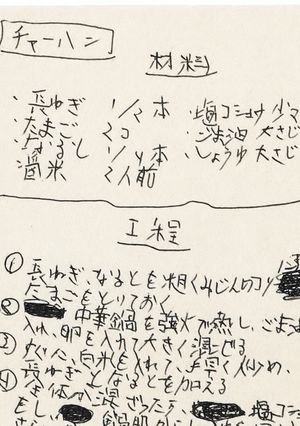 チャーハン
材料
・長ねぎ 1/2本 ・塩コショウ 少々
・たまご 2コ ・ごま油 大さじ
・なると 1/4本 ・しょうゆ 大さじ
・白米 2人前
工程
① 長ねぎ、なるとを粗くみじん切り
たまごをといておく
② 中華鍋を強火で熱し、ごま油
入れ、卵を入れて大きく混ぜる
③ すぐに、白米を入れて、手早く炒め、
長ねぎとなるとを加える
④ 全体が混ざったら、塩コショウ
もし 鍋肌